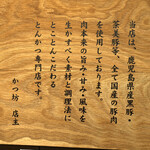 当店は、鹿児島県産黒豚・
茶美豚等、全て国産の豚肉
を使用しております。
肉本来の旨み・甘み・風味を
生かすべく素材と調理法に
とことんこだわる
とんかつ専門店です。
かつ坊 店主